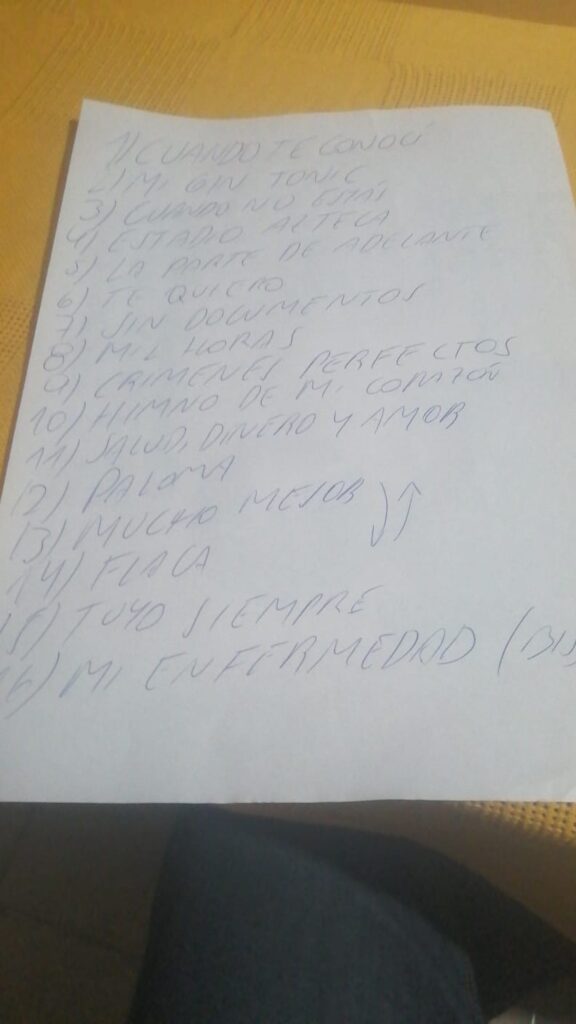 1) CUANDO TE CONOCÍ
2) MI GIN TONIC
3) CUANDO NO ESTÁS
4) ESTADIO AZTECA
5) LA PARTE DE ADELANTE
6) TE QUIERO
7) SIN DOCUMENTOS
8) MIL HORAS
9) CRIMENES PERFECTOS
10) HIMNO DE MI CORAZÓN
11) SALUD, DINERO Y AMOR
12) PALOMA
13) MUCHO MEJOR
14) FLACA
15) TUYO SIEMPRE
16) MI ENFERMEDAD (BIS